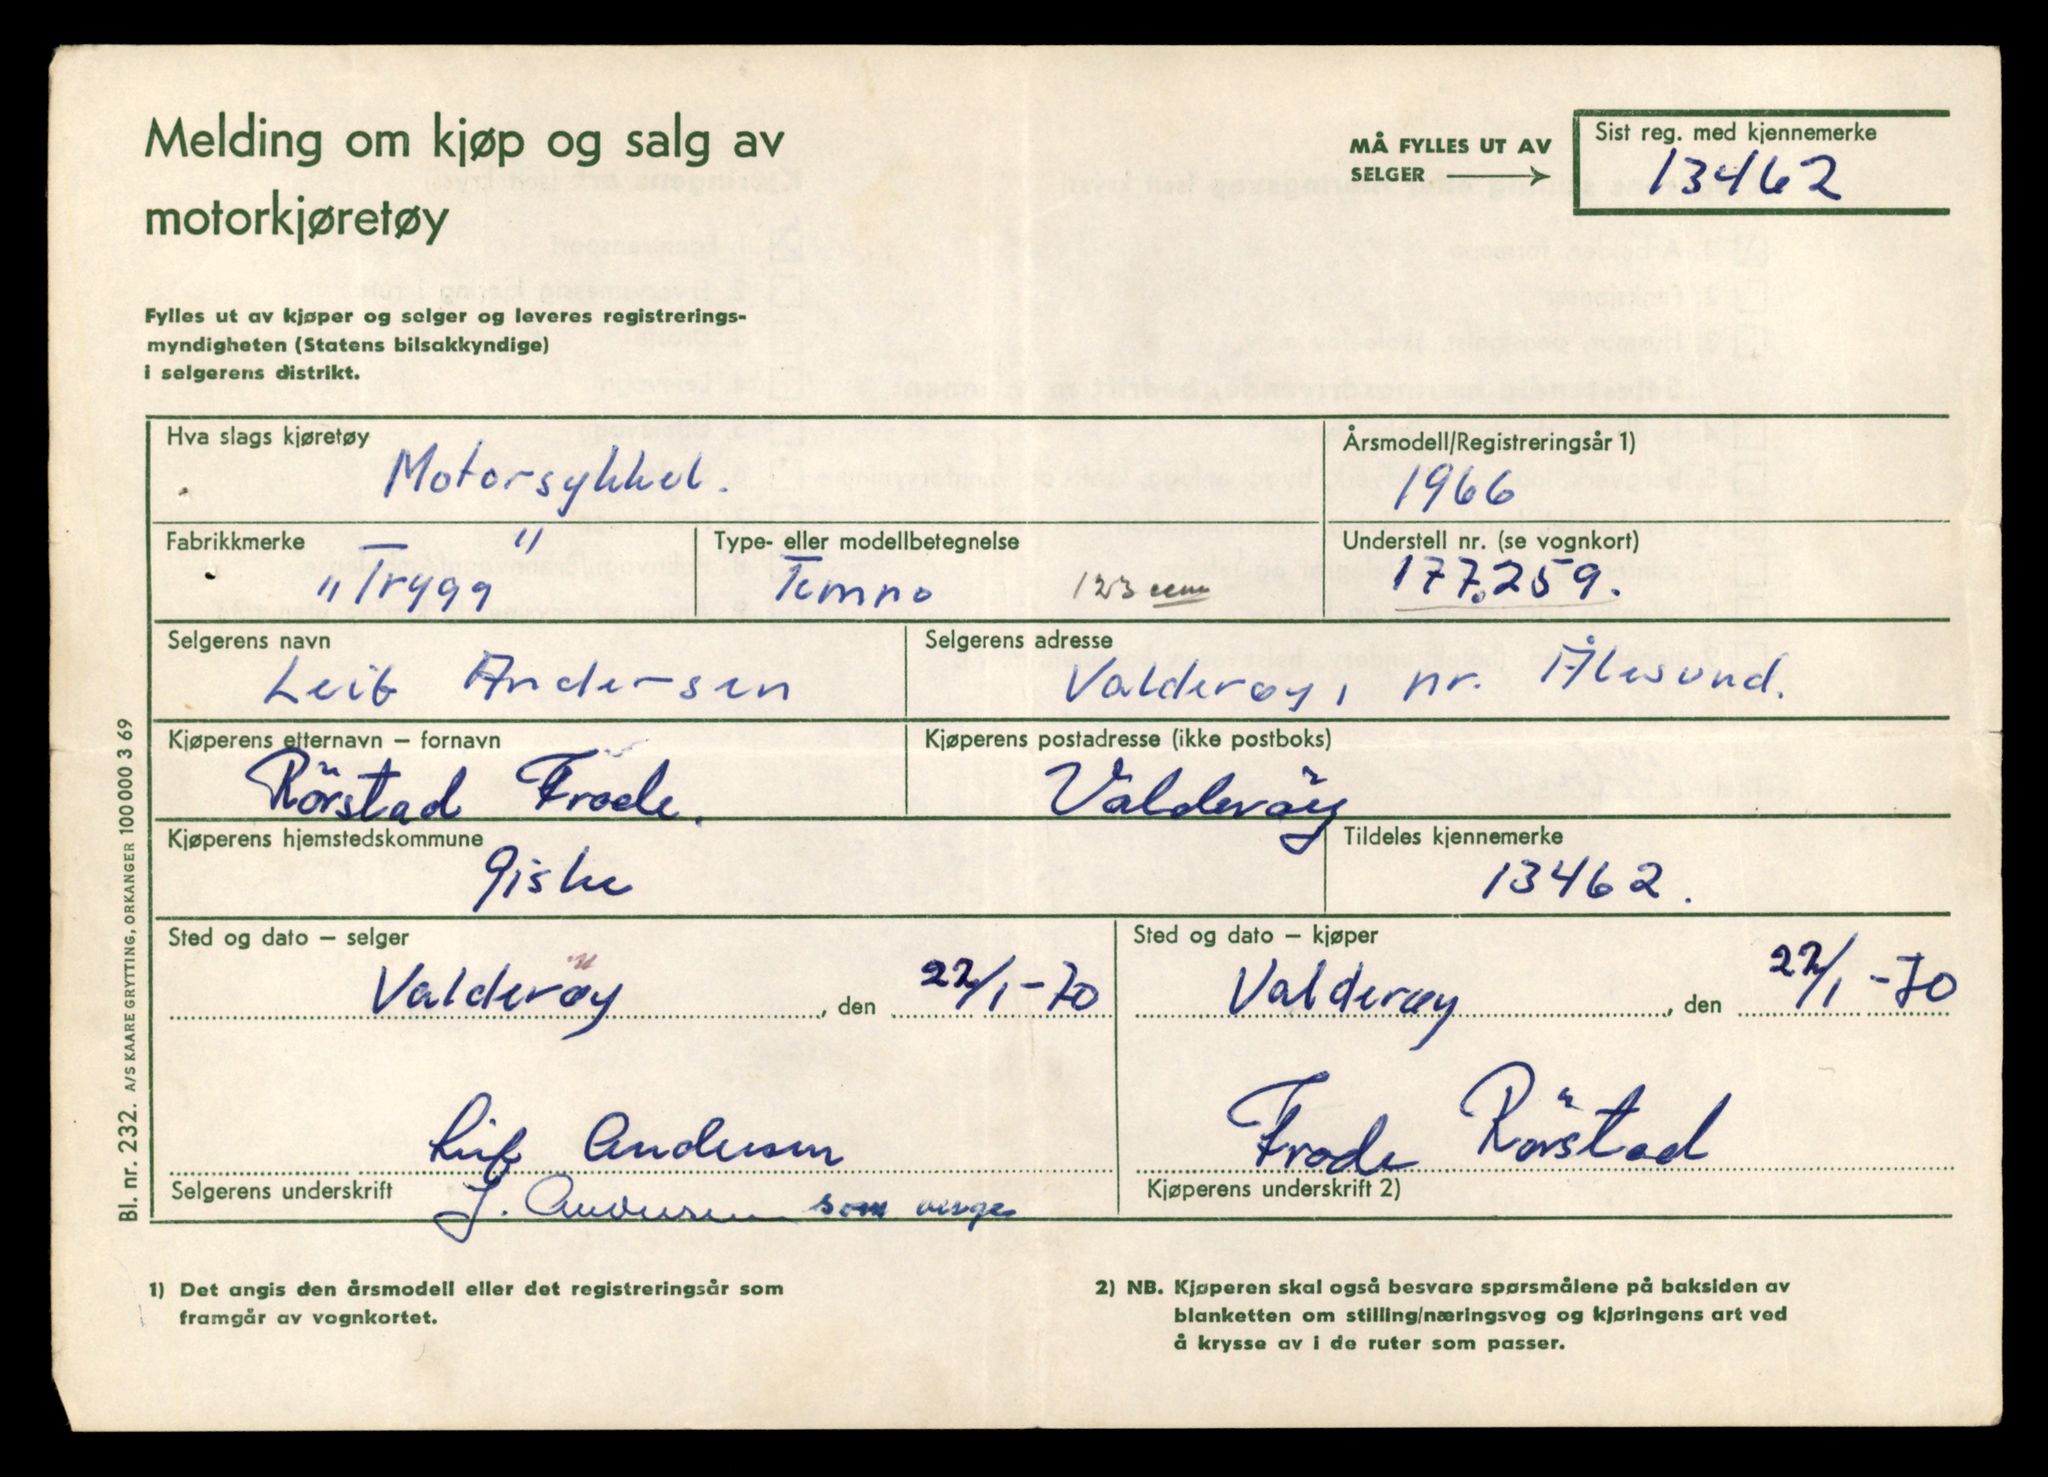 Melding om kjøp og salg av
motorkjøretøy
MÅ FYLLES UT AV
SELGER
Sist reg. med kjennemerke
13462
Fylles ut av kjøper og selger og leveres registrerings-
myndigheten (Statens bilsakkyndige)
i selgerens distrikt.
Hva slags kjøretøy
Motorsykkel.
Årsmodell/Registreringsår 1)
1966
Fabrikkmerke
"Trygg"
Type- eller modellbetegnelse
Tempo 123 ccm
Understell nr. (se vognkort)
177.259.
Selgerens navn
Leif Andersen
Selgerens adresse
Valderøy, nr. Ålesund.
Kjøperens etternavn – fornavn
Rörstad Frode.
Kjøperens postadresse (ikke postboks)
Valderöy
Kjøperens hjemstedskommune
Giske
Tildeles kjennemerke
13462.
Sted og dato – selger
Valderøy, den 22/1-70
Sted og dato – kjøper
Valderøy, den 22/1-70
Leif Andersen
Selgerens underskrift
J. Andersen som verge
Frode Rörstad
Kjøperens underskrift 2)
1) Det angis den årsmodell eller det registreringsår som
framgår av vognkortet.
2) NB. Kjøperen skal også besvare spørsmålene på baksiden av
blanketten om stilling/næringsveg og kjøringens art ved
å krysse av i de ruter som passer.
Bl. nr. 232. A/S KAARE GRYTTING, ORKANGER 100 000 3 69